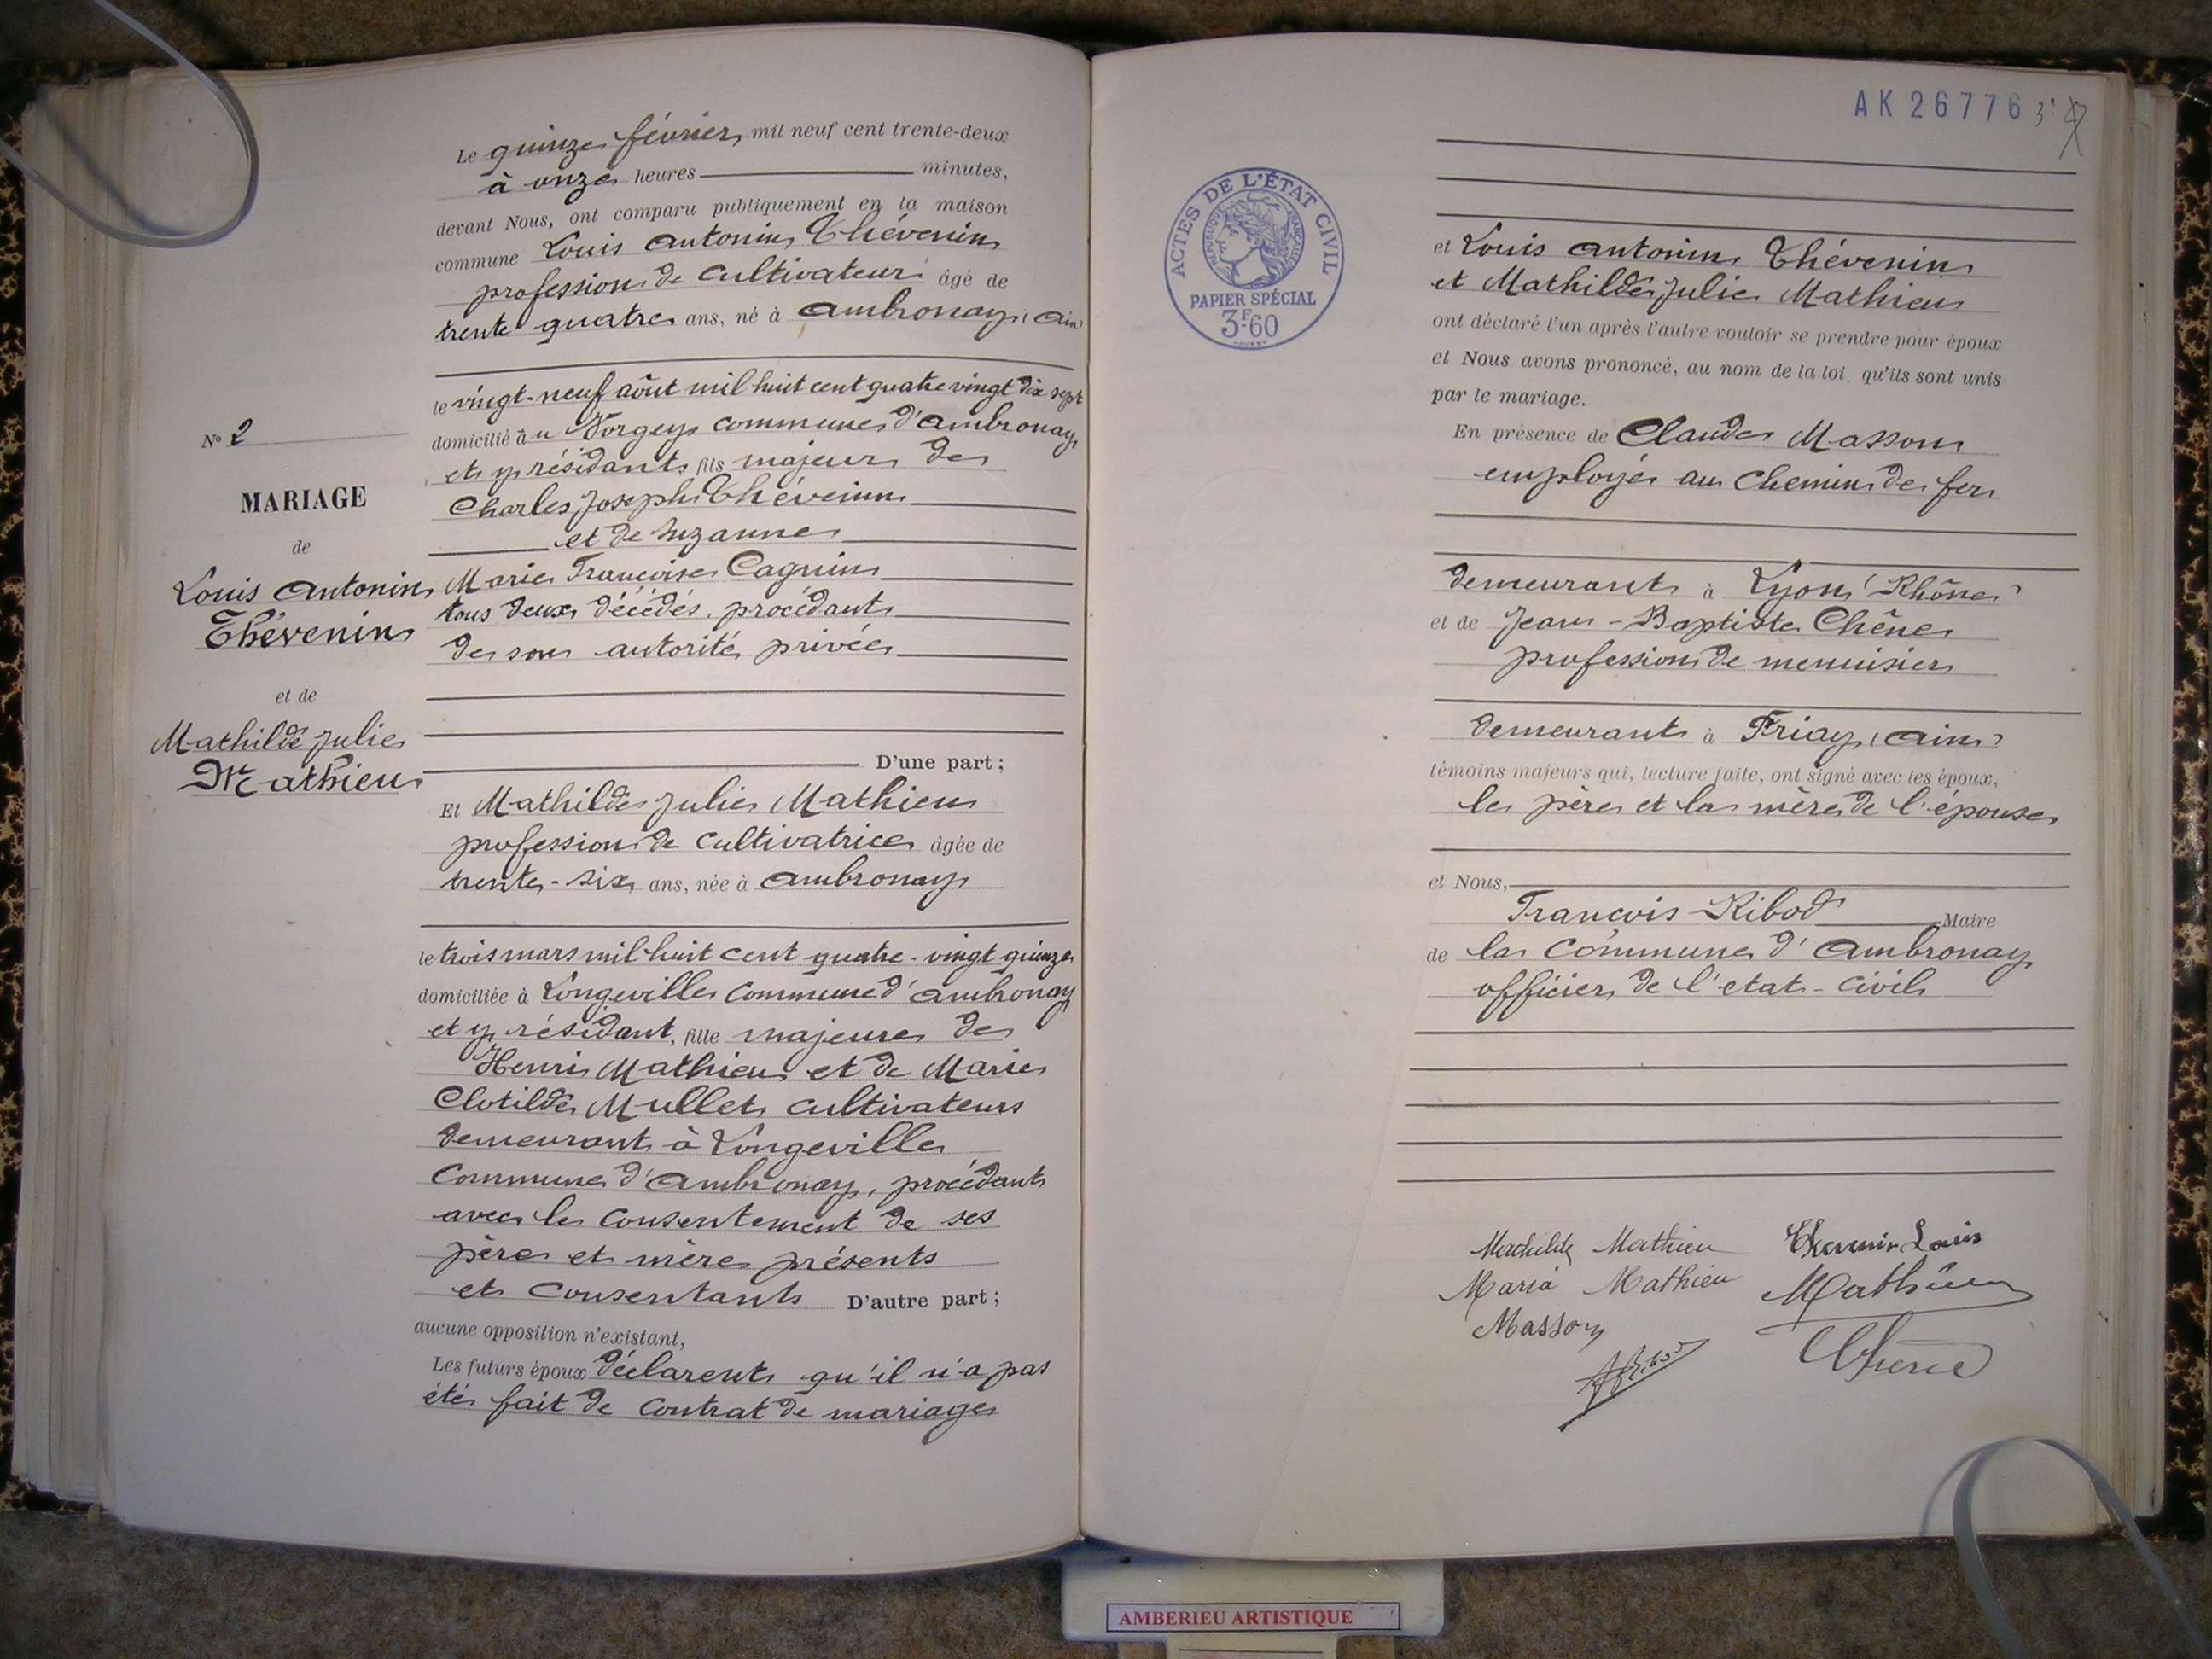 Le quinze février mil neuf cent trente-deux
à onze heures minutes,
devant Nous, ont comparu publiquement en la maison
commune Louis Antonin Thévenin
profession de cultivateur âgé de
trente quatre ans, né à Ambronay (Ain)
le vingt-neuf août mil huit cent quatre vingt dix sept
domicilié au Vorgey commune d'Ambronay
et y résidant, fils majeur de
Charles Joseph Thévenin
et de Suzanne
Marie Françoise Cagnin
tous deux décédés, procédant
de son autorité privée
D'une part ;
Nº 2
MARIAGE
de
Louis Antonin
Thévenin
et de
Mathilde Julie
Mathieu
Et Mathilde Julie Mathieu
profession de cultivatrice âgée de
trente-six ans, née à Ambronay
le trois mars mil huit cent quatre-vingt quinze
domiciliée à Longeville commune d'Ambronay
et y résidant, fille majeure de
Henri Mathieu et de Marie
Clotilde Mullet cultivateurs
demeurant à Longeville
commune d'Ambronay, procédant
avec le consentement de ses
père et mère présents
et consentants D'autre part ;
aucune opposition n'existant,
Les futurs époux déclarent qu'il n'a pas
été fait de contrat de mariage
AK 26776
ACTES DE L'ÉTAT CIVIL
RÉPUBLIQUE FRANÇAISE
PAPIER SPÉCIAL
3F60
et Louis Antonin Thévenin
et Mathilde Julie Mathieu
ont déclaré l'un après l'autre vouloir se prendre pour époux
et Nous avons prononcé, au nom de la loi, qu'ils sont unis
par le mariage.
En présence de Claude Masson
employé au Chemin de fer
demeurant à Lyon (Rhône)
et de Jean-Baptiste Chêne
profession de menuisier
demeurant à Priay (Ain)
témoins majeurs qui, lecture faite, ont signé avec les époux,
le père et la mère de l'épouse
et Nous,
François Ribod Maire
de la commune d'Ambronay
officier de l'etat-civil
Mathilde Mathieu Thevenin Louis
Maria Mathieu Mathieu
Masson Chêne
AMBERIEU ARTISTIQUE